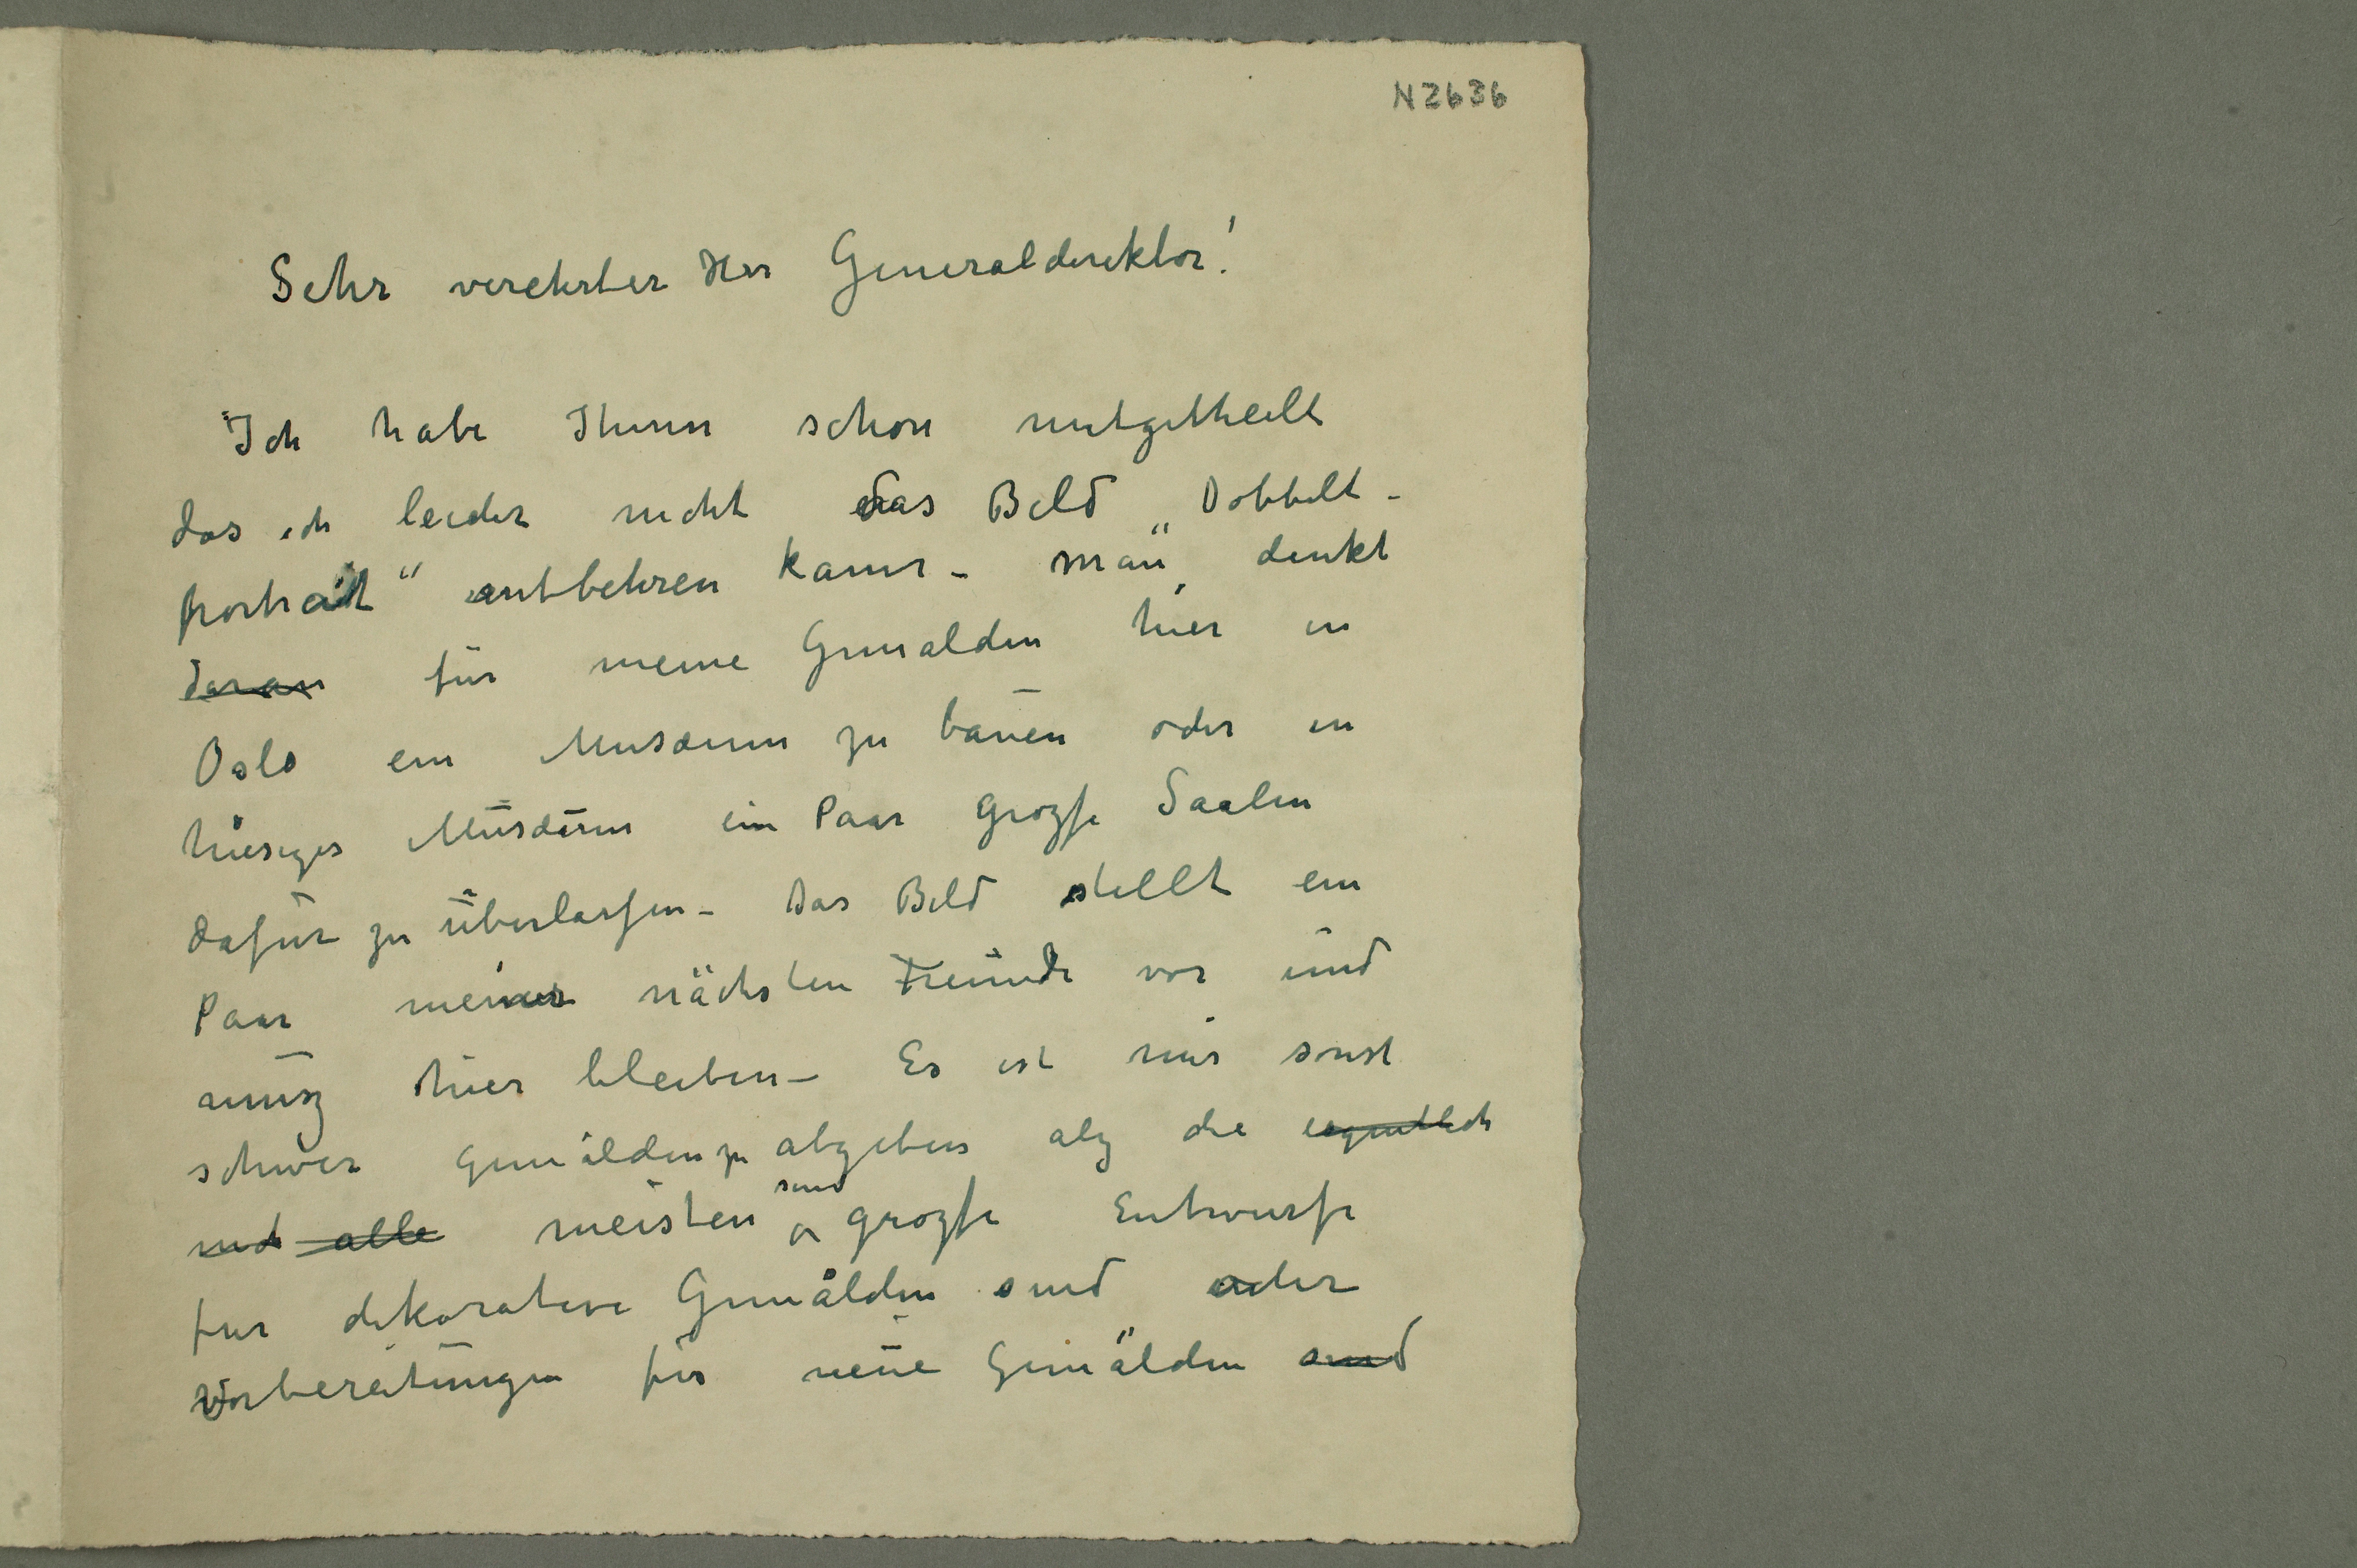 N 2636
Sehr verehrter Herr Generaldirektor!
Ich habe Ihnen schon mitgetheilt
das ich leider nicht das Bild „Dobbelt-
porträt“ entbehren kann – man denkt
daran für meine Gemalden hier in
Oslo ein Musæum zu bauen oder in
hiesiges Musæum ein Paar grozse Saalen
dafür zu überlassen – Das Bild stellt ein
Paar meiner nächsten Freunde vor und
musz hier bleiben – Es ist mir sonst
schwer gemälden zu abgeben alz die eigentlich
und alle meisten sind grozse Entwurfe
fur dekorative Gemälden sind oder
Vorbereitungen für neue Gemälden sind